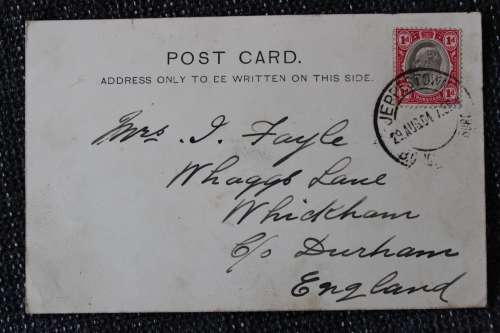 POST CARD.
ADDRESS ONLY TO BE WRITTEN ON THIS SIDE.
1d 1d
JEPPESTOWN
29 AUG 04
Mrs. I. Fayle
Whaggs Lane
Whickham
C/o Durham
England